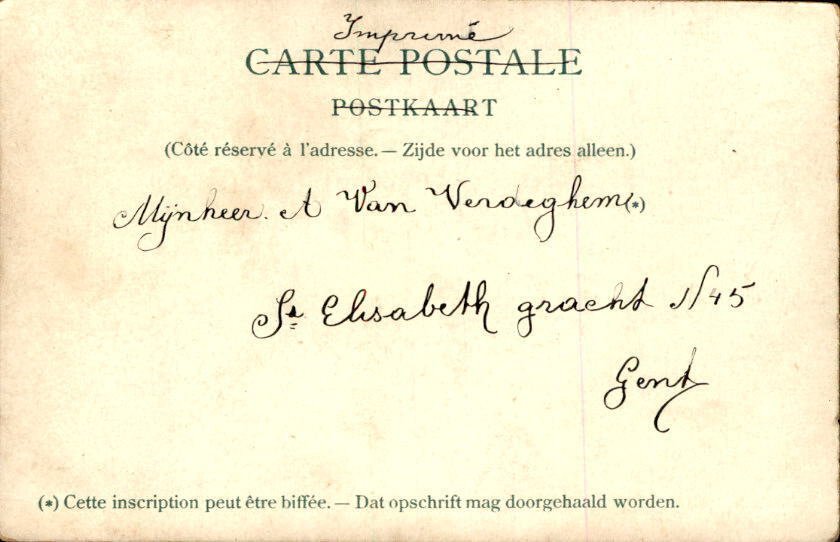 Imprimé
CARTE POSTALE
POSTKAART
(Côté réservé à l'adresse. — Zijde voor het adres alleen.)
Mijnheer. A Van Verdeghem (*)
St Elisabeth gracht N 45
Gent
(*) Cette inscription peut être biffée. — Dat opschrift mag doorgehaald worden.